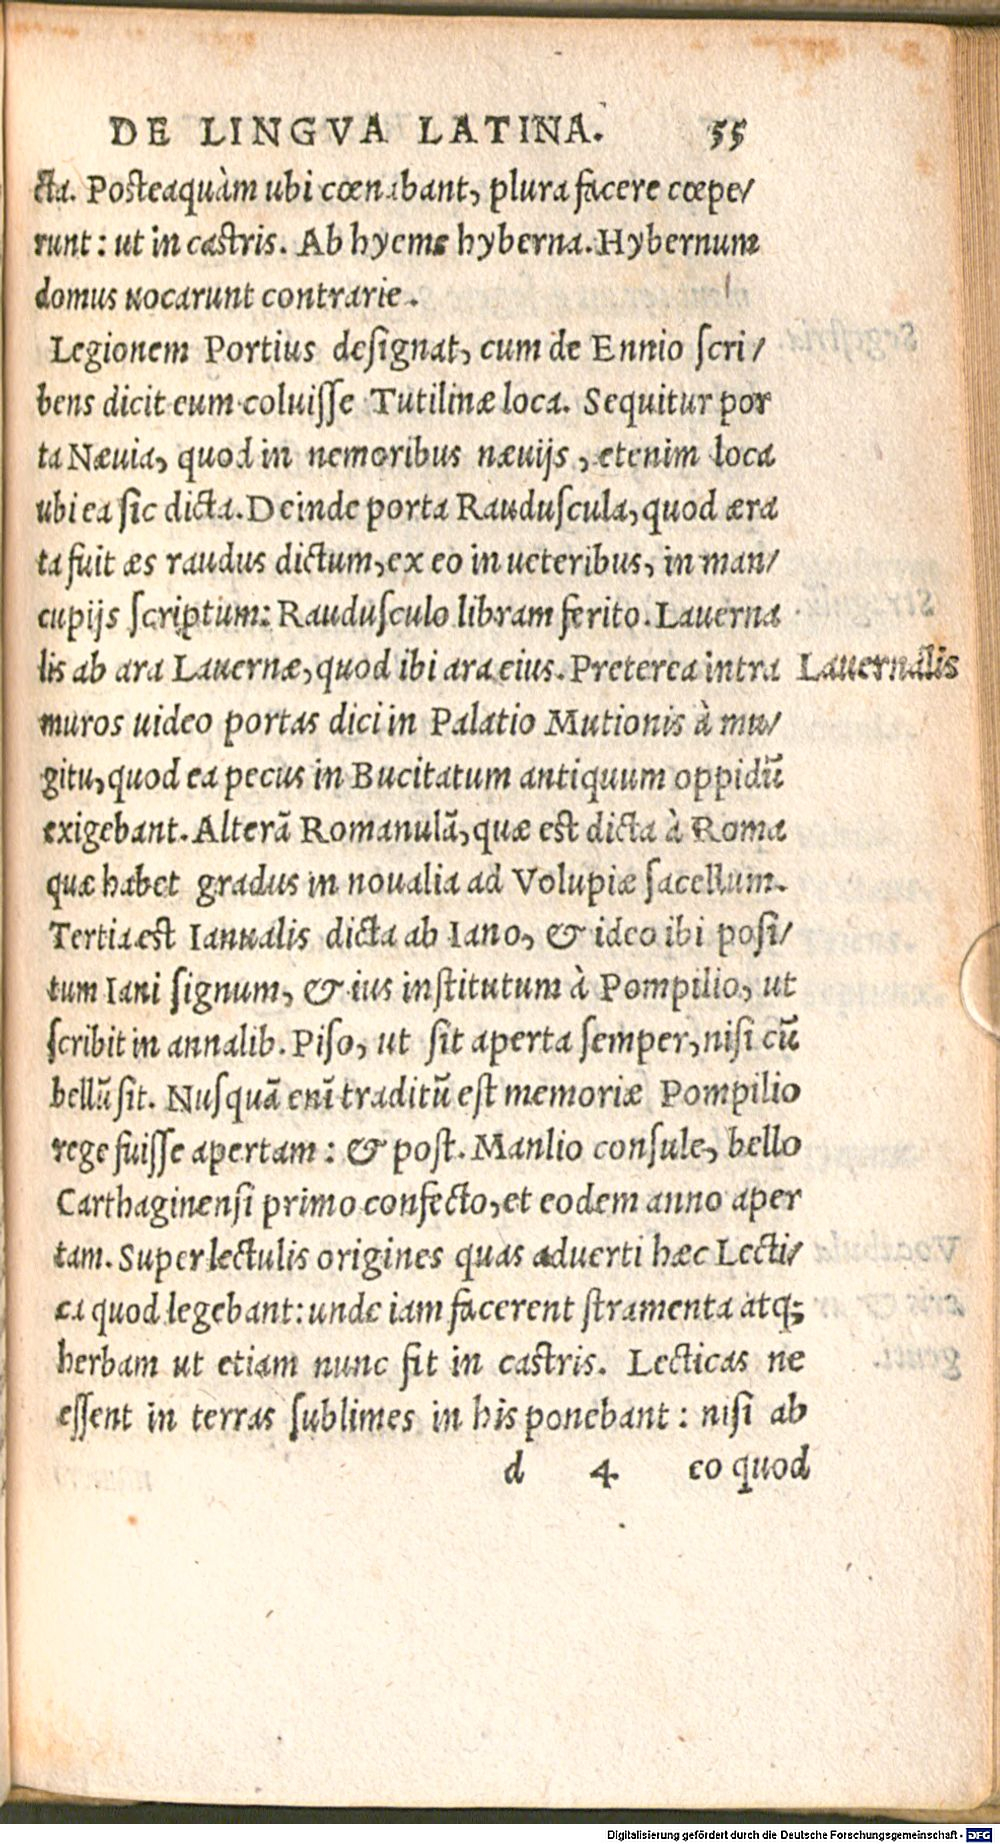 DE LINGVA LATINA. 55
cta. Posteaquàm ubi cœnabant, plura facere cœpe/
runt: ut in castris. Ab hyeme hyberna. Hybernum
domus uocarunt contrarie.
Legionem Portius designat, cum de Ennio scri/
bens dicit eum coluisse Tutilinæ loca. Sequitur por
ta Næuia, quod in nemoribus næuijs, etenim loca
ubi ea sic dicta. Deinde porta Rauduscula, quod æra
ta fuit æs raudus dictum, ex eo in ueteribus, in man/
cupijs scriptum: Raudusculo libram ferito. Lauerna
lis ab ara Lauernæ, quod ibi ara eius. Preterea intra
Lauernalis
muros uideo portas dici in Palatio Mutionis à mu/
gitu, quod ea pecus in Bucitatum antiquum oppidū
exigebant. Alterā Romanulā, quæ est dicta à Roma
quæ habet gradus in noualia ad Volupiæ sacellum.
Tertia est Ianualis dicta ab Iano, & ideo ibi posi/
tum Iani signum, & ius institutum à Pompilio, ut
scribit in annalib. Piso, ut sit aperta semper, nisi cū
bellū sit. Nusquā enī traditū est memoriæ Pompilio
rege fuisse apertam: & post. Manlio consule, bello
Carthaginensi primo confecto, et eodem anno aper
tam. Super lectulis origines quas aduerti hæc Lecti/
ca quod legebant: unde iam facerent stramenta atq;
herbam ut etiam nunc fit in castris. Lecticas ne
essent in terras sublimes in his ponebant: nisi ab
d 4 eo quod
Digitalisierung gefördert durch die Deutsche Forschungsgemeinschaft - DFG